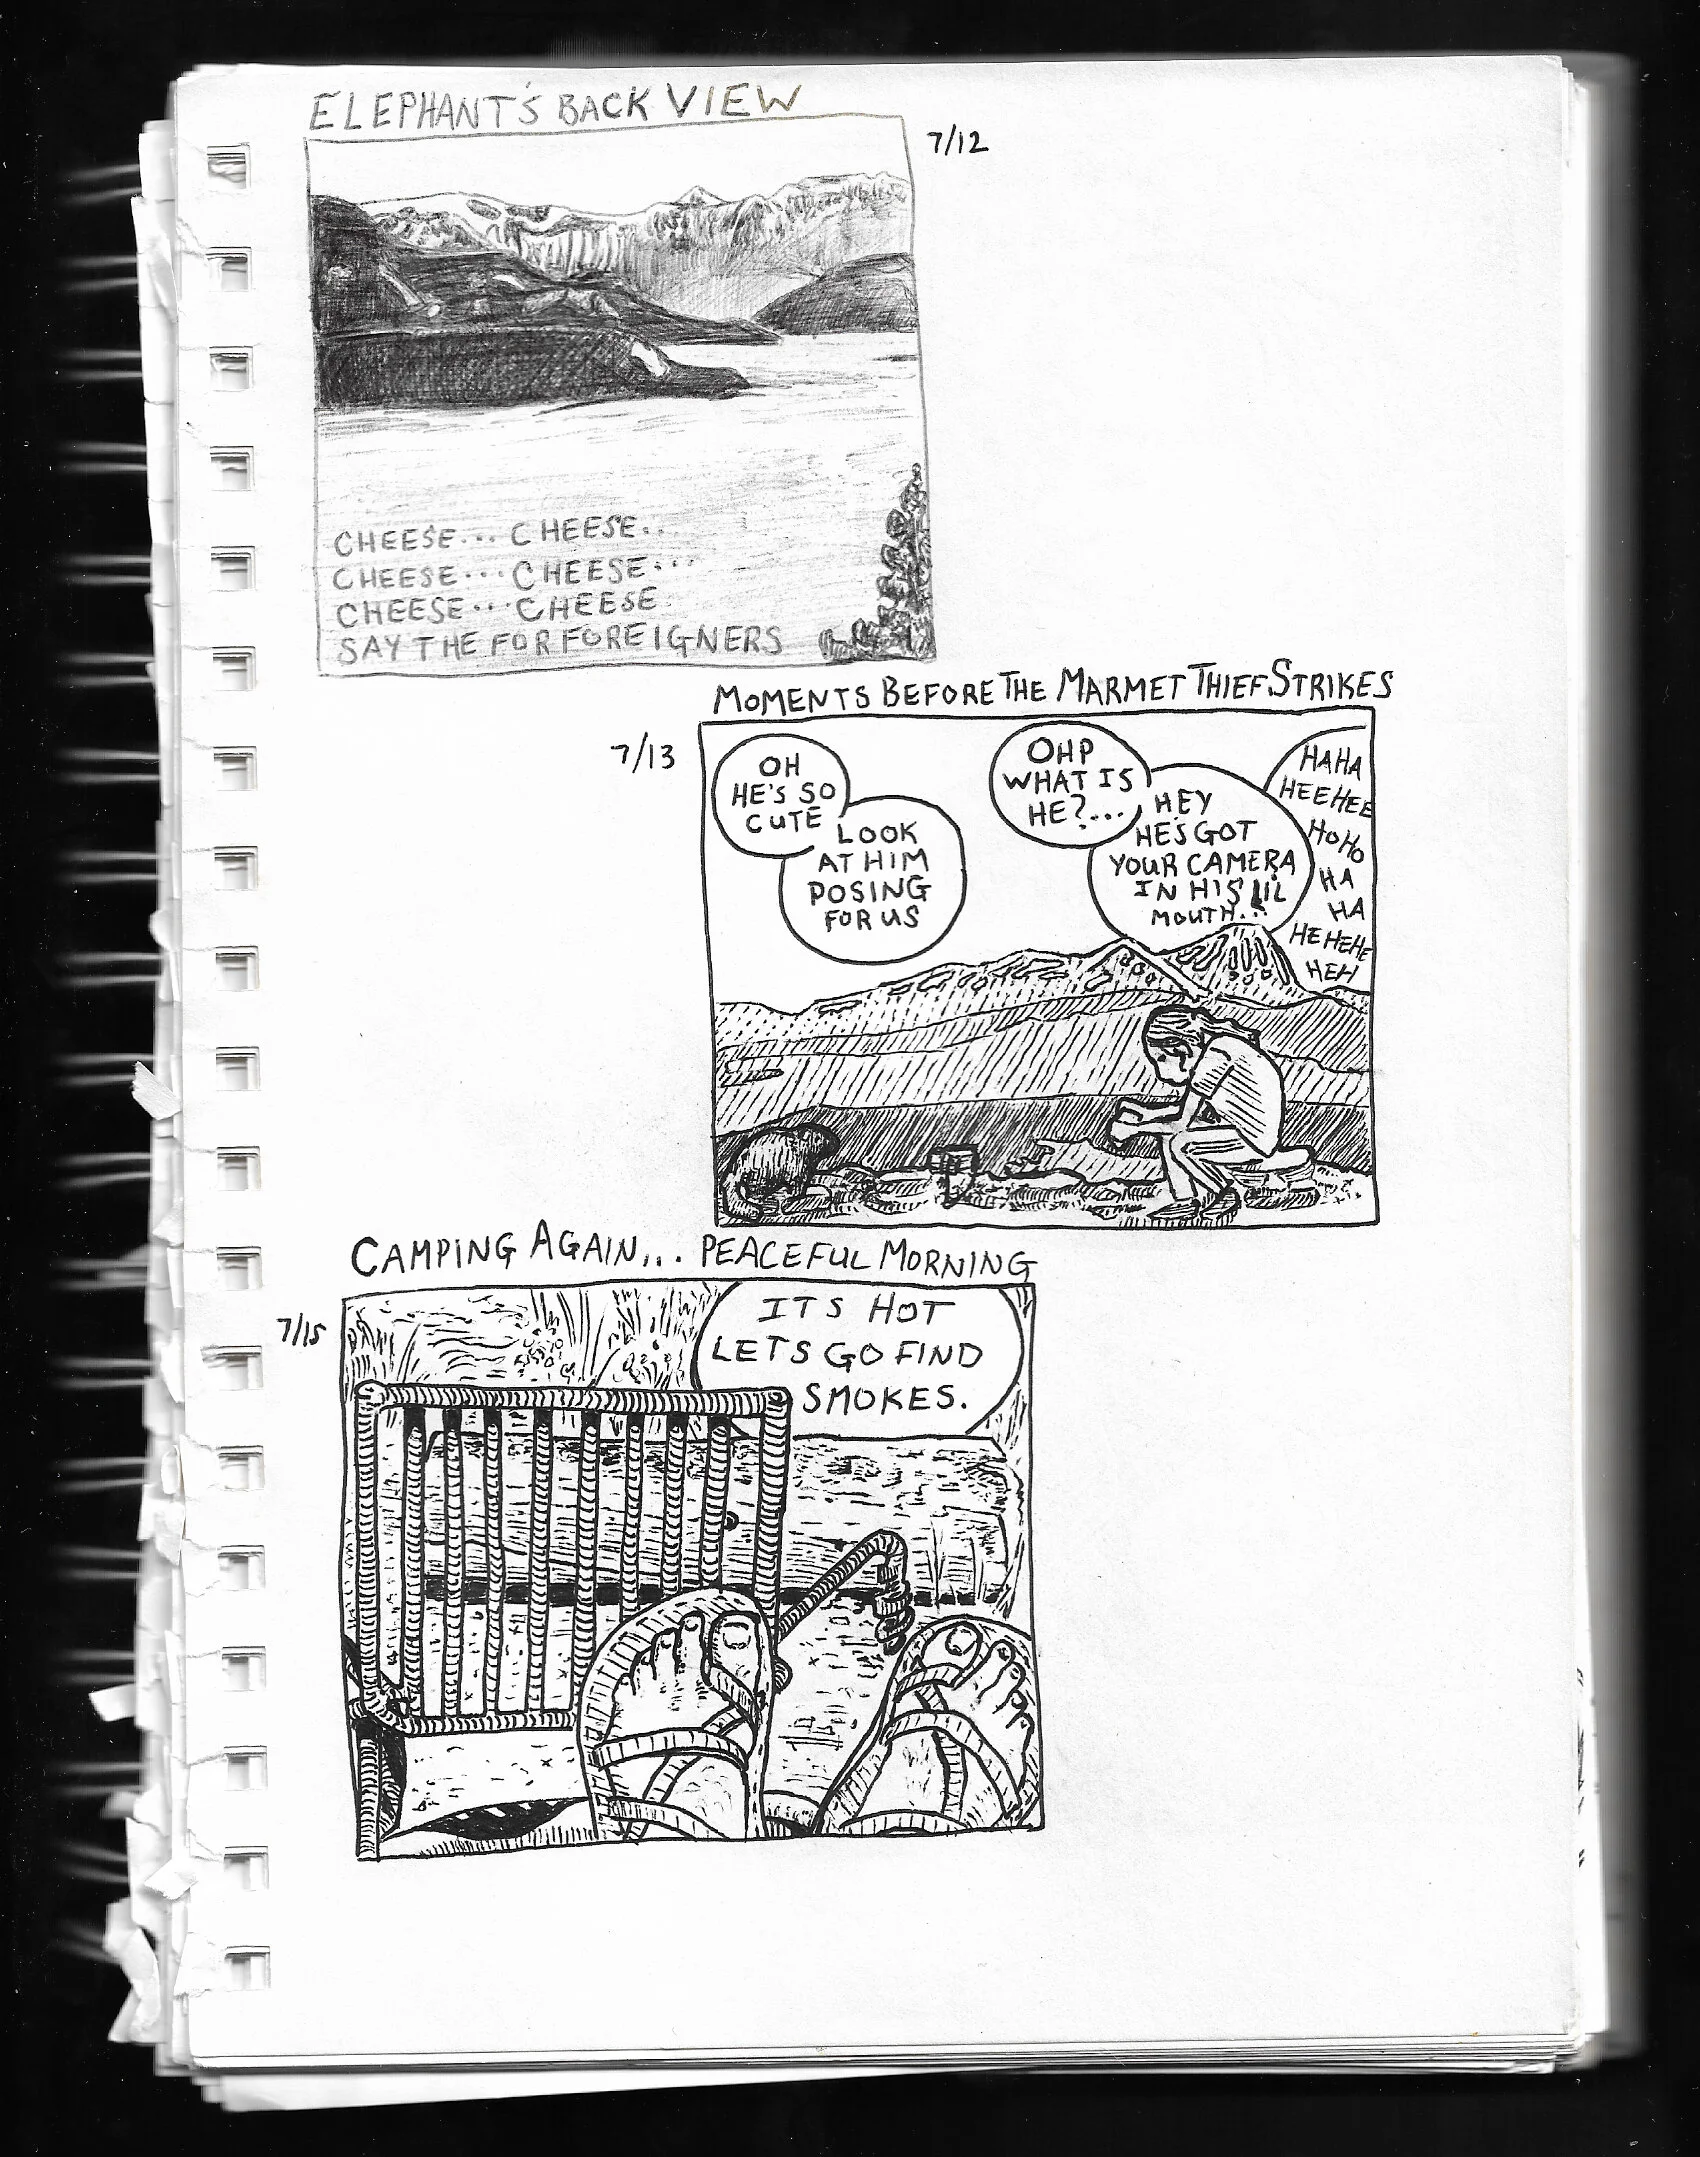 ELEPHANT'S BACK VIEW
7/12
CHEESE... CHEESE..
CHEESE... CHEESE...
CHEESE... CHEESE
SAY THE FOR FOREIGNERS
MOMENTS BEFORE THE MARMET THIEF STRIKES
7/13
OH
HE'S SO
CUTE
LOOK
AT HIM
POSING
FOR US
OHP
WHAT IS
HE?...
HEY
HE'S GOT
YOUR CAMERA
IN HIS LIL
MOUTH...
HAHA
HEEHEE
HOHO
HA
HA
HEHEHE
HEH
CAMPING AGAIN... PEACEFUL MORNING
7/15
ITS HOT
LETS GO FIND
SMOKES.